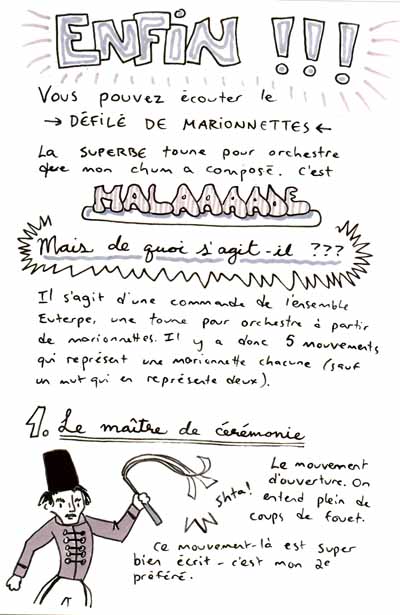 ENFIN !!!
Vous pouvez écouter le
→ DÉFILÉ DE MARIONNETTES ←
La SUPERBE toune pour orchestre
que mon chum a composé. C'est
MALAAAAADE
Mais de quoi s'agit-il ???
Il s'agit d'une commande de l'ensemble
Euterpe, une toune pour orchestre à partir
de marionnettes. Il y a donc 5 mouvements
qui représent une marionnette chacune (sauf
un mut qui en représente deux).
1. Le maître de cérémonie
Le mouvement
d'ouverture. On
entend plein de
coups de fouet.
Shta!
Ce mouvement-là est super
bien écrit - c'est mon 2e
préféré.